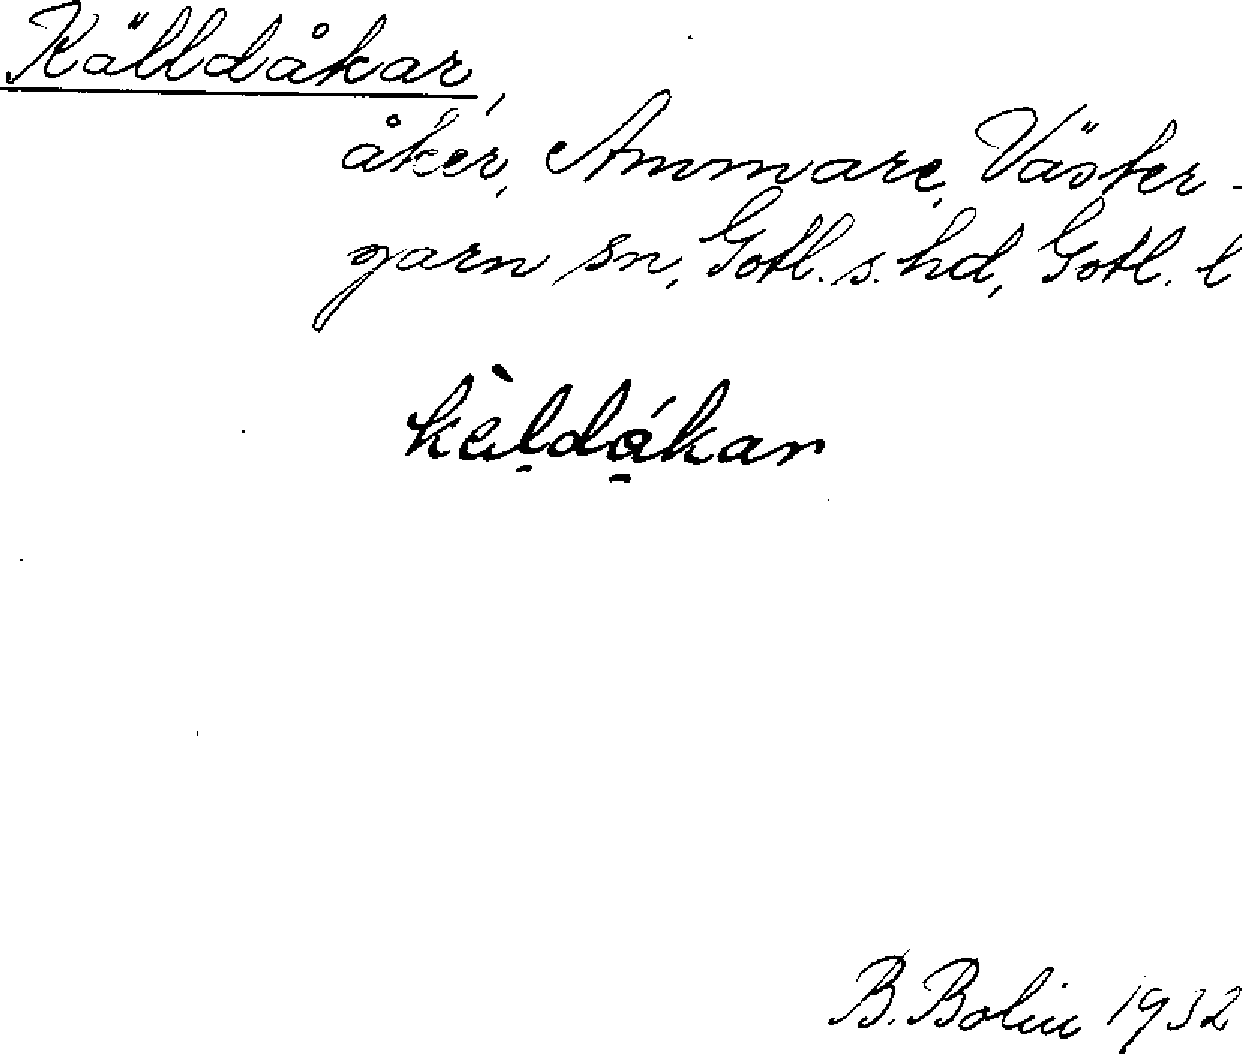 Källdåkar,
åker, Ammare, Väster-
garn sn, Gotl. s. hd, Gotl. l
kàldákar
B. Bolin 1932